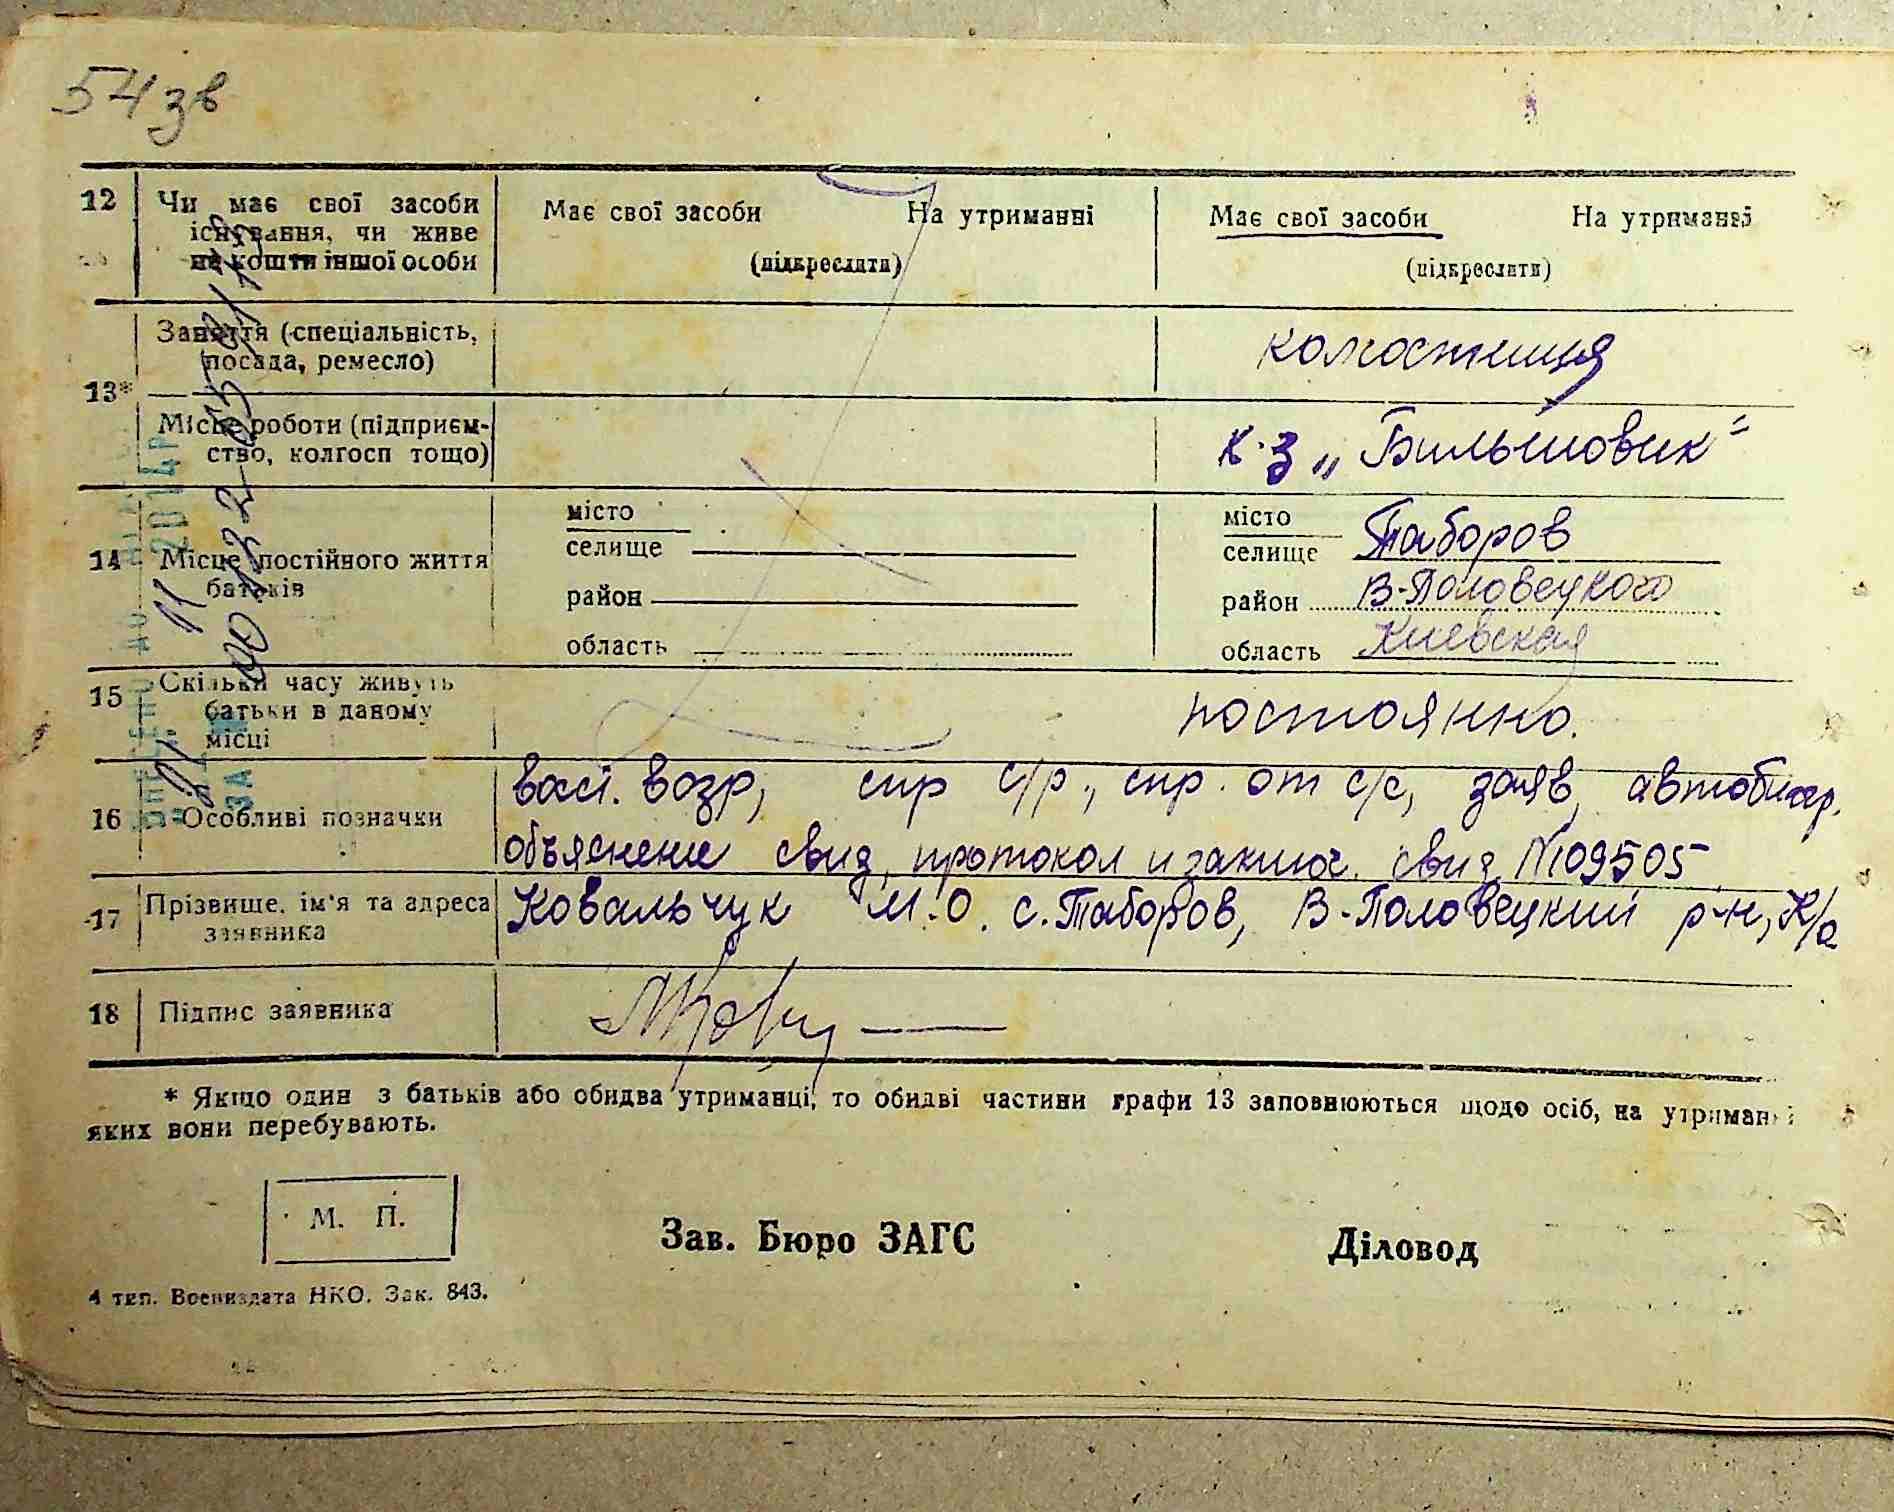 54 зв
12 Чи має свої засоби існування, чи живе на кошти іншої особи
Має свої засоби На утриманні
(підкреслити)
Має свої засоби На утриманні
(підкреслити)
13*
Заняття (спеціальність,
посада, ремесло)
колхозниця
Місце роботи (підприєм-
ство, колгосп тощо)
к-з „Бильшовик"
14 Місце постійного життя
батьків
місто
селище
район
область
місто
селище Таборов
район В-Половецкого
область Киевская
15 Скільки часу живуть
батьки в даному
місці
постоянно.
16 Особливі позначки
возр, спр с/р., спр. от с/с, заяв, автобиогр.
объяснение свид, протокол и заключ. свид №09505
17 Прізвище, ім'я та адреса
заявника
Ковальчук М.О. с. Таборов, В-Половецкий р-н, К/о
18 Підпис заявника
* Якщо один з батьків або обидва утриманці, то обидві частини графи 13 заповнюються щодо осіб, на утриманні
яких вони перебувають.
М. П.
Зав. Бюро ЗАГС
Діловод
4 тип. Воениздата НКО. Зак. 843.